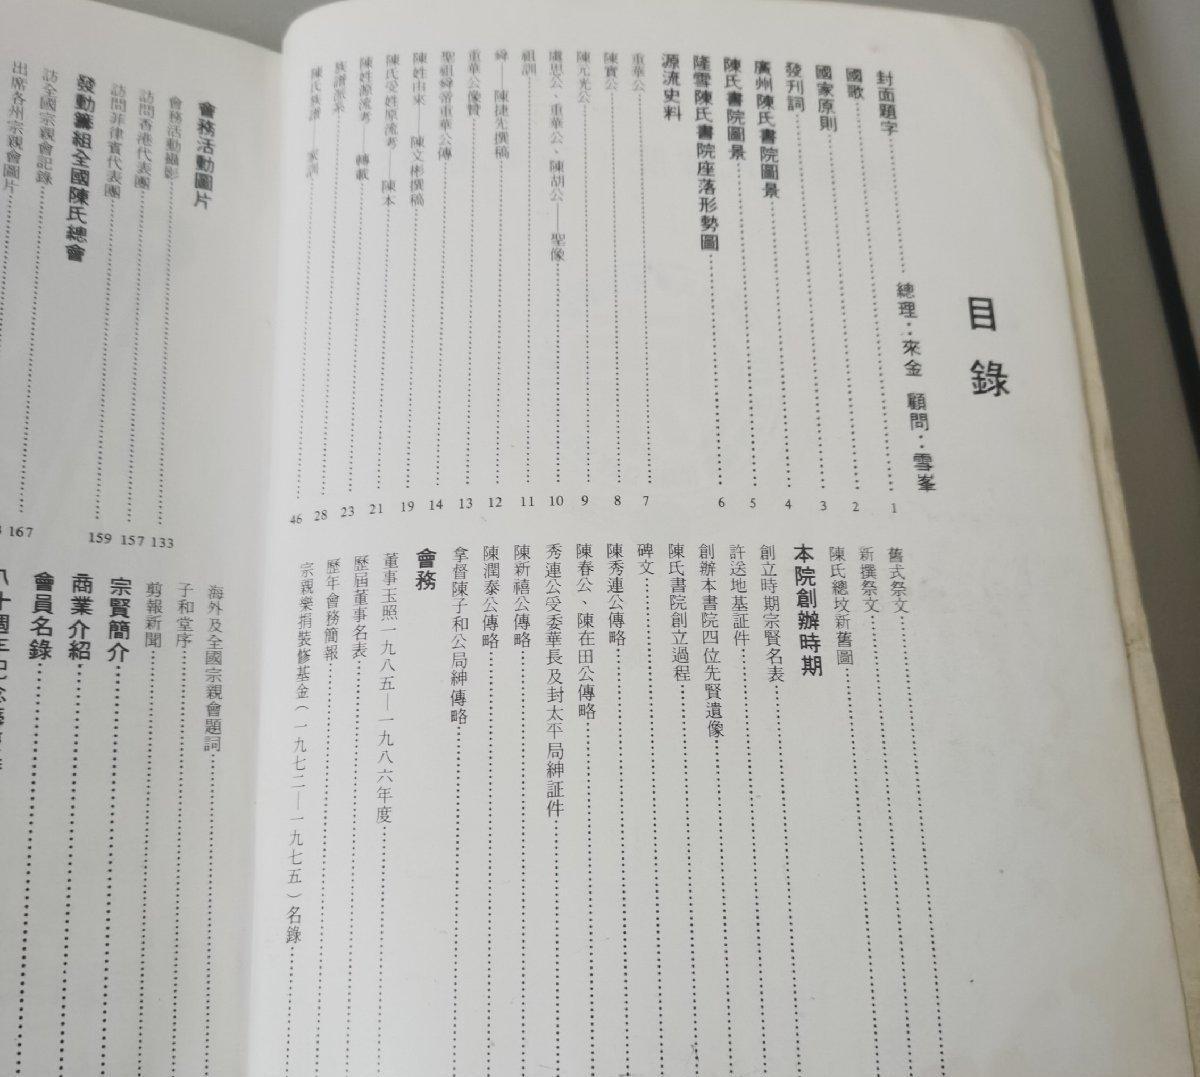 目錄
封面題字……總理：來金 顧問：雪峯……1
國歌……2
國家原則……3
發刊詞……4
廣州陳氏書院圖景……5
陳氏書院圖景……6
隆雪陳氏書院座落形勢圖
源流史料
重華公……7
陳實公……8
陳元光公……9
虞思公、重華公、陳胡公——聖像……10
祖訓……11
舜——陳捷先撰稿……12
重華公像贊……13
聖祖舜帝重華公傳……14
陳姓由來——陳文彬撰稿……19
陳氏受姓原流考——陳本……21
陳姓源流考——轉載……23
族譜派系……28
陳氏族譜——家訓……46
舊式祭文
新撰祭文
陳氏總坟新舊圖
本院創辦時期
創立時期宗賢名表
許送地基証件
創辦本書院四位先賢遺像
陳氏書院創立過程
碑文
陳秀連公傳略
陳春公、陳在田公傳略
秀連公受委華長及封太平局紳証件
陳新禧公傳略
陳潤泰公傳略
拿督陳子和公局紳傳略
會務
董事玉照一九八五—一九八六年度
歷屆董事名表
歷年會務簡報
宗親樂捐裝修基金（一九七二—一九七五）名錄
會務活動圖片
會務活動攝影……133
訪問香港代表團……157
訪問菲律賓代表團……159
發動籌組全國陳氏總會
訪全國宗親會記錄……167
出席各州宗親會圖片
海外及全國宗親會題詞
子和堂序
剪報新聞
宗賢簡介
商業介紹
會員名錄